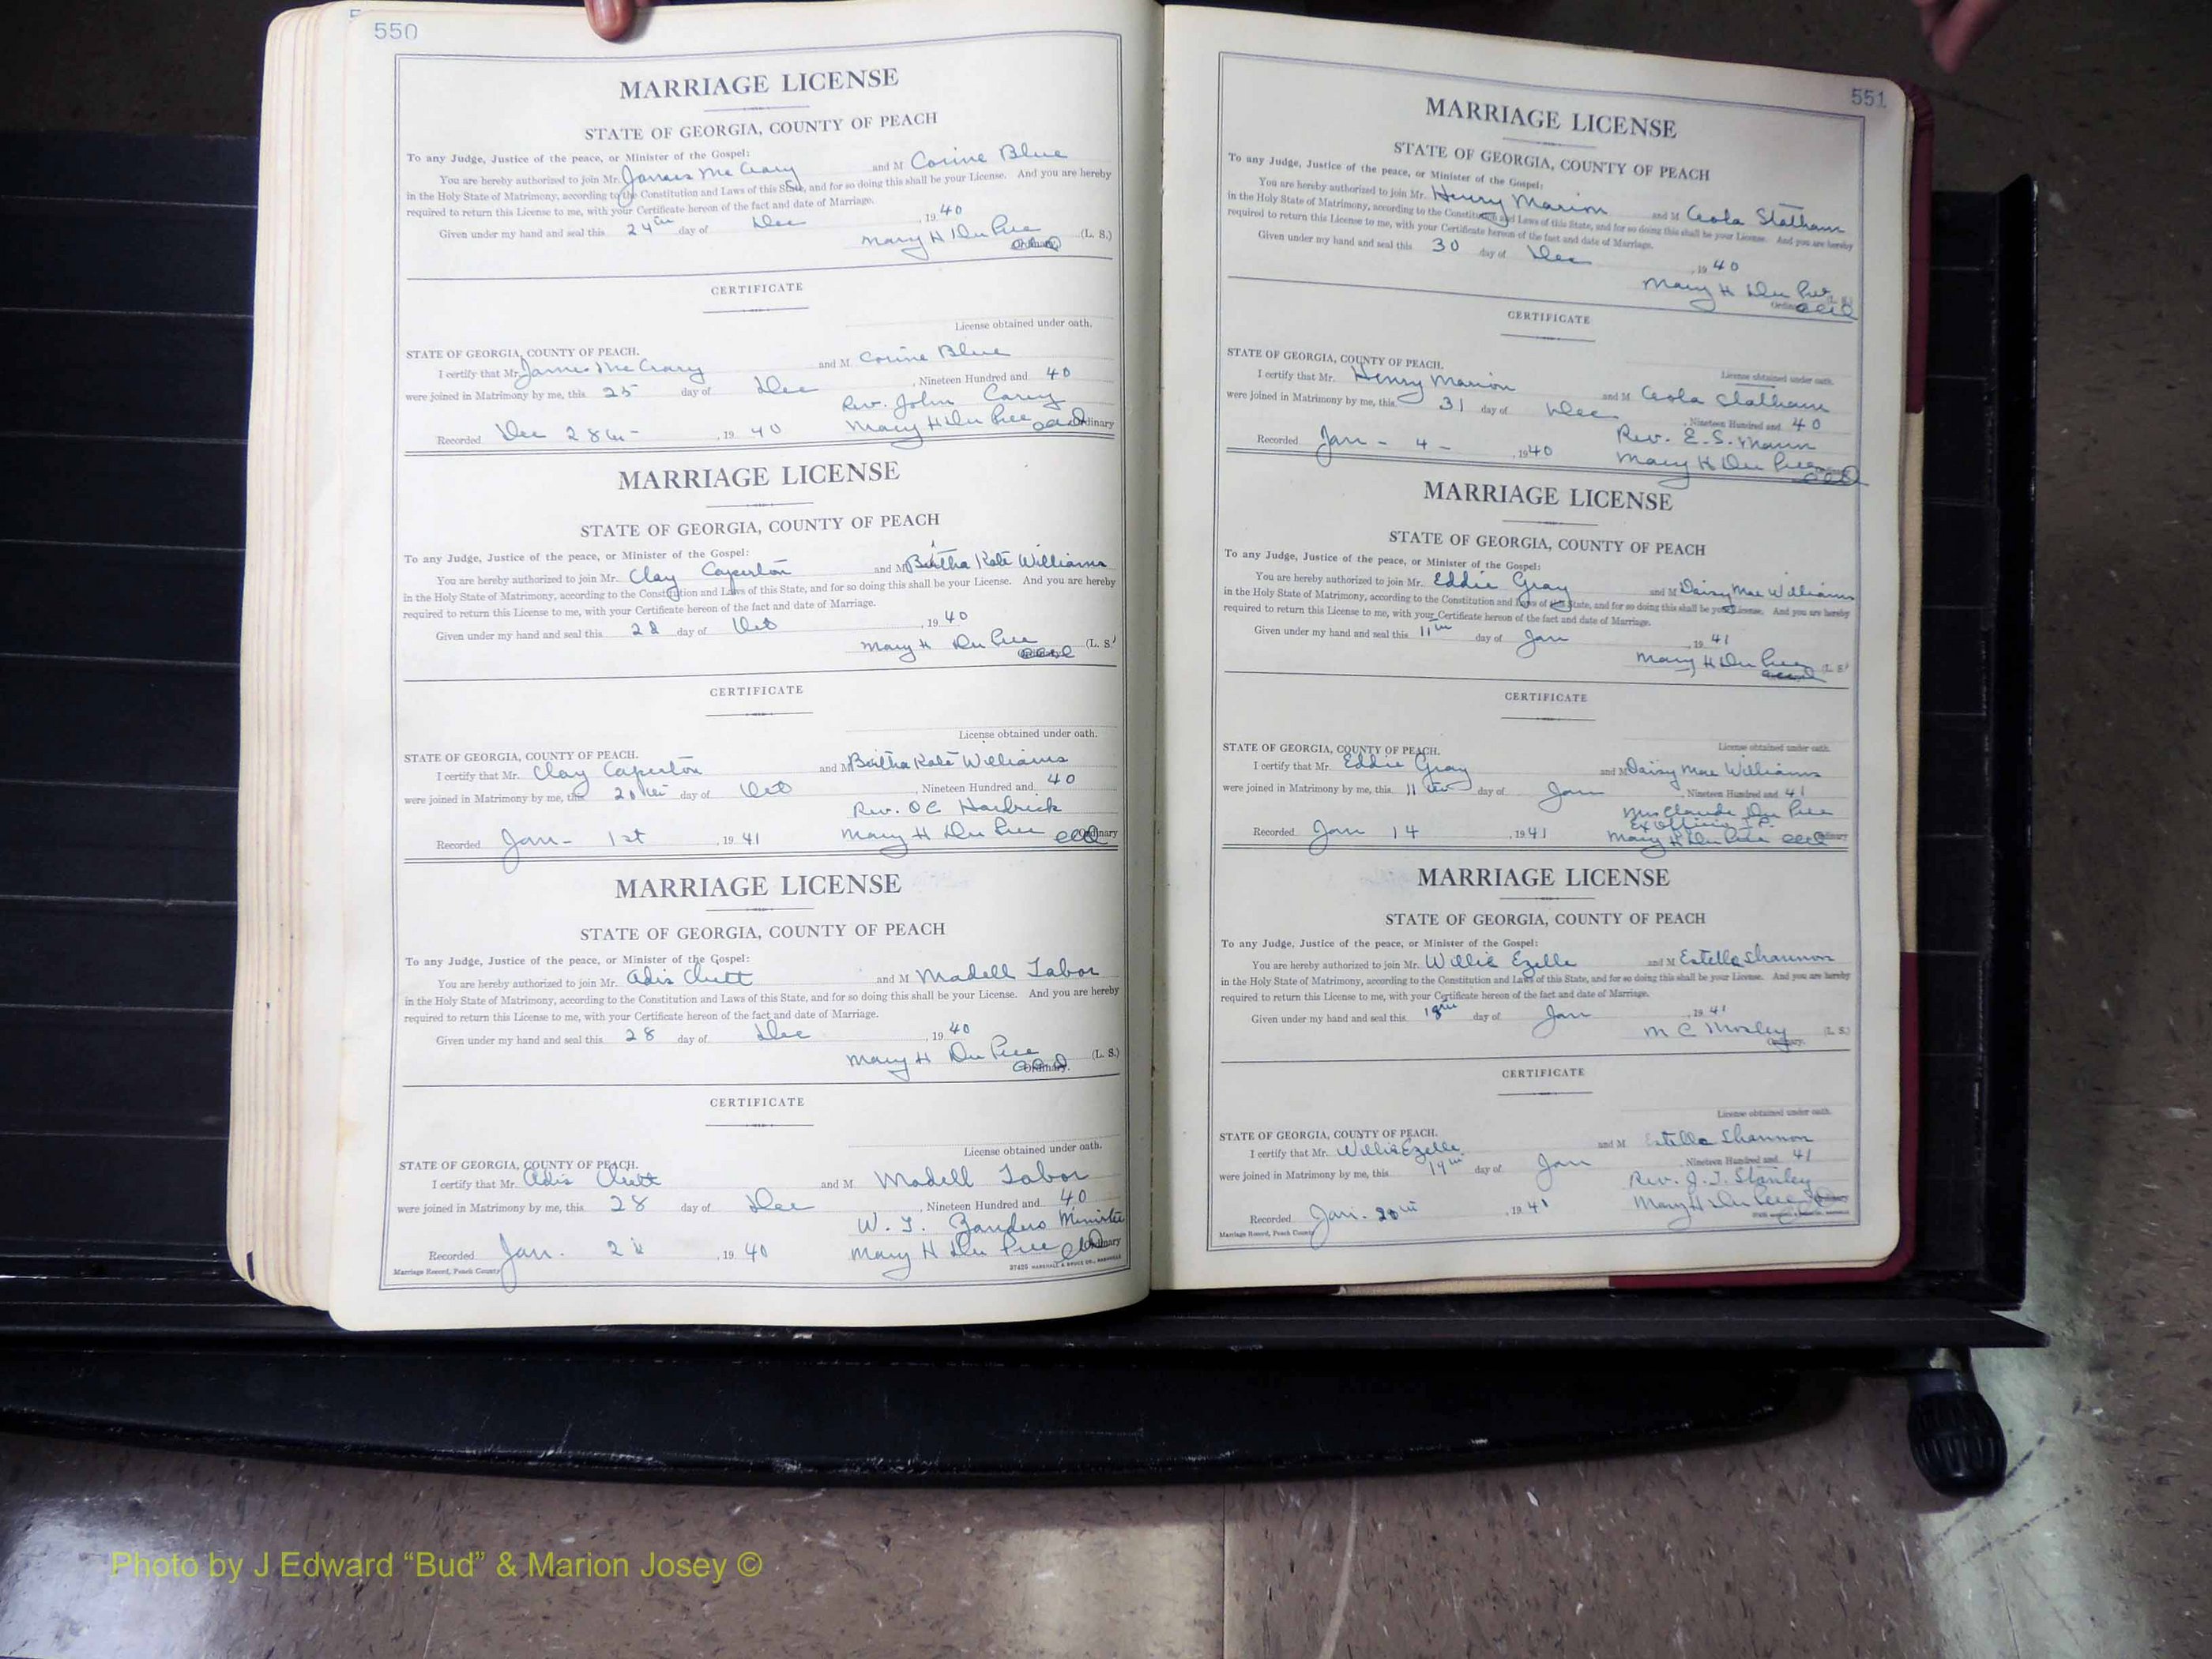 550
MARRIAGE LICENSE
STATE OF GEORGIA, COUNTY OF PEACH
To any Judge, Justice of the peace, or Minister of the Gospel:
You are hereby authorized to join Mr. James McCrary and M Corine Blue
in the Holy State of Matrimony, according to the Constitution and Laws of this State, and for so doing this shall be your License. And you are hereby
required to return this License to me, with your Certificate hereon of the fact and date of Marriage.
Given under my hand and seal this 24th day of Dec , 1940
Mary H Du Pree (L. S.)
CERTIFICATE
License obtained under oath.
STATE OF GEORGIA, COUNTY OF PEACH.
I certify that Mr. James McCrary and M Corine Blue
were joined in Matrimony by me, this 25 day of Dec , Nineteen Hundred and 40
Rev. John Carey
Recorded Dec 28th- , 1940 Mary H Du Pree Ordinary
MARRIAGE LICENSE
STATE OF GEORGIA, COUNTY OF PEACH
To any Judge, Justice of the peace, or Minister of the Gospel:
You are hereby authorized to join Mr. Clay Caperton and M Bertha Kate Williams
in the Holy State of Matrimony, according to the Constitution and Laws of this State, and for so doing this shall be your License. And you are hereby
required to return this License to me, with your Certificate hereon of the fact and date of Marriage.
Given under my hand and seal this day of Oct , 1940
Mary H Du Pree (L. S.
CERTIFICATE
License obtained under oath.
STATE OF GEORGIA, COUNTY OF PEACH.
I certify that Mr. Clay Caperton and M Bertha Kate Williams
were joined in Matrimony by me, this 20th day of Oct , Nineteen Hundred and 40
Rev. OC
Recorded Jan- 1st , 1941 Mary H Du Pree Ordinary
MARRIAGE LICENSE
STATE OF GEORGIA, COUNTY OF PEACH
To any Judge, Justice of the peace, or Minister of the Gospel:
You are hereby authorized to join Mr. Adis Clutt and M Madell Tabor
in the Holy State of Matrimony, according to the Constitution and Laws of this State, and for so doing this shall be your License. And you are hereby
required to return this License to me, with your Certificate hereon of the fact and date of Marriage.
Given under my hand and seal this 28 day of Dec , 1940
Mary H Du Pree (L. S.)
Ordinary.
CERTIFICATE
License obtained under oath.
STATE OF GEORGIA, COUNTY OF PEACH.
I certify that Mr. Adis Clutt and M Madell Tabor
were joined in Matrimony by me, this 28 day of Dec , Nineteen Hundred and 40
W. J. Zanders Minister
Recorded Jan. , 1940 Mary H Du Pree Ordinary
Marriage Record, Peach County 27425 MARSHALL & BRUCE CO., NASHVILLE
551
MARRIAGE LICENSE
STATE OF GEORGIA, COUNTY OF PEACH
To any Judge, Justice of the peace, or Minister of the Gospel:
You are hereby authorized to join Mr. Henry Marion and M Ceola Statham
in the Holy State of Matrimony, according to the Constitution and Laws of this State, and for so doing this shall be your License. And you are hereby
required to return this License to me, with your Certificate hereon of the fact and date of Marriage.
Given under my hand and seal this 30 day of Dec , 1940
Mary H Du Pree (L. S.)
CERTIFICATE
License obtained under oath.
STATE OF GEORGIA, COUNTY OF PEACH.
I certify that Mr. Henry Marion and M Ceola Statham
were joined in Matrimony by me, this 31 day of Dec , Nineteen Hundred and 40
Rev. E. S. Mann
Recorded Jan - 4 - , 1940 Mary H Du Pree
MARRIAGE LICENSE
STATE OF GEORGIA, COUNTY OF PEACH
To any Judge, Justice of the peace, or Minister of the Gospel:
You are hereby authorized to join Mr. Eddie Gray and M Daisy Mae Williams
in the Holy State of Matrimony, according to the Constitution and Laws of this State, and for so doing this shall be your License. And you are hereby
required to return this License to me, with your Certificate hereon of the fact and date of Marriage.
Given under my hand and seal this 11th day of Jan , 1941
Mary H Du Pree (L. S.
CERTIFICATE
License obtained under oath.
STATE OF GEORGIA, COUNTY OF PEACH.
I certify that Mr. Eddie Gray and M Daisy Mae Williams
were joined in Matrimony by me, this 11th day of Jan , Nineteen Hundred and 41
Mrs Claude Du Pree
Ex Officio J.P.
Recorded Jan 14 , 1941 Mary H Du Pree Ordinary
MARRIAGE LICENSE
STATE OF GEORGIA, COUNTY OF PEACH
To any Judge, Justice of the peace, or Minister of the Gospel:
You are hereby authorized to join Mr. Willie Ezelle and M Estella Shannon
in the Holy State of Matrimony, according to the Constitution and Laws of this State, and for so doing this shall be your License. And you are hereby
required to return this License to me, with your Certificate hereon of the fact and date of Marriage.
Given under my hand and seal this 18th day of Jan , 1941
M C Mosley (L. S.)
Ordinary.
CERTIFICATE
License obtained under oath.
STATE OF GEORGIA, COUNTY OF PEACH.
I certify that Mr. Willie Ezelle and M Estella Shannon
were joined in Matrimony by me, this 19th day of Jan , Nineteen Hundred and 41
Rev. J. T. Stanley
Recorded Jan. 20th , 1941 Mary H Du Pree
Marriage Record, Peach County
Photo by J Edward “Bud” & Marion Josey ©